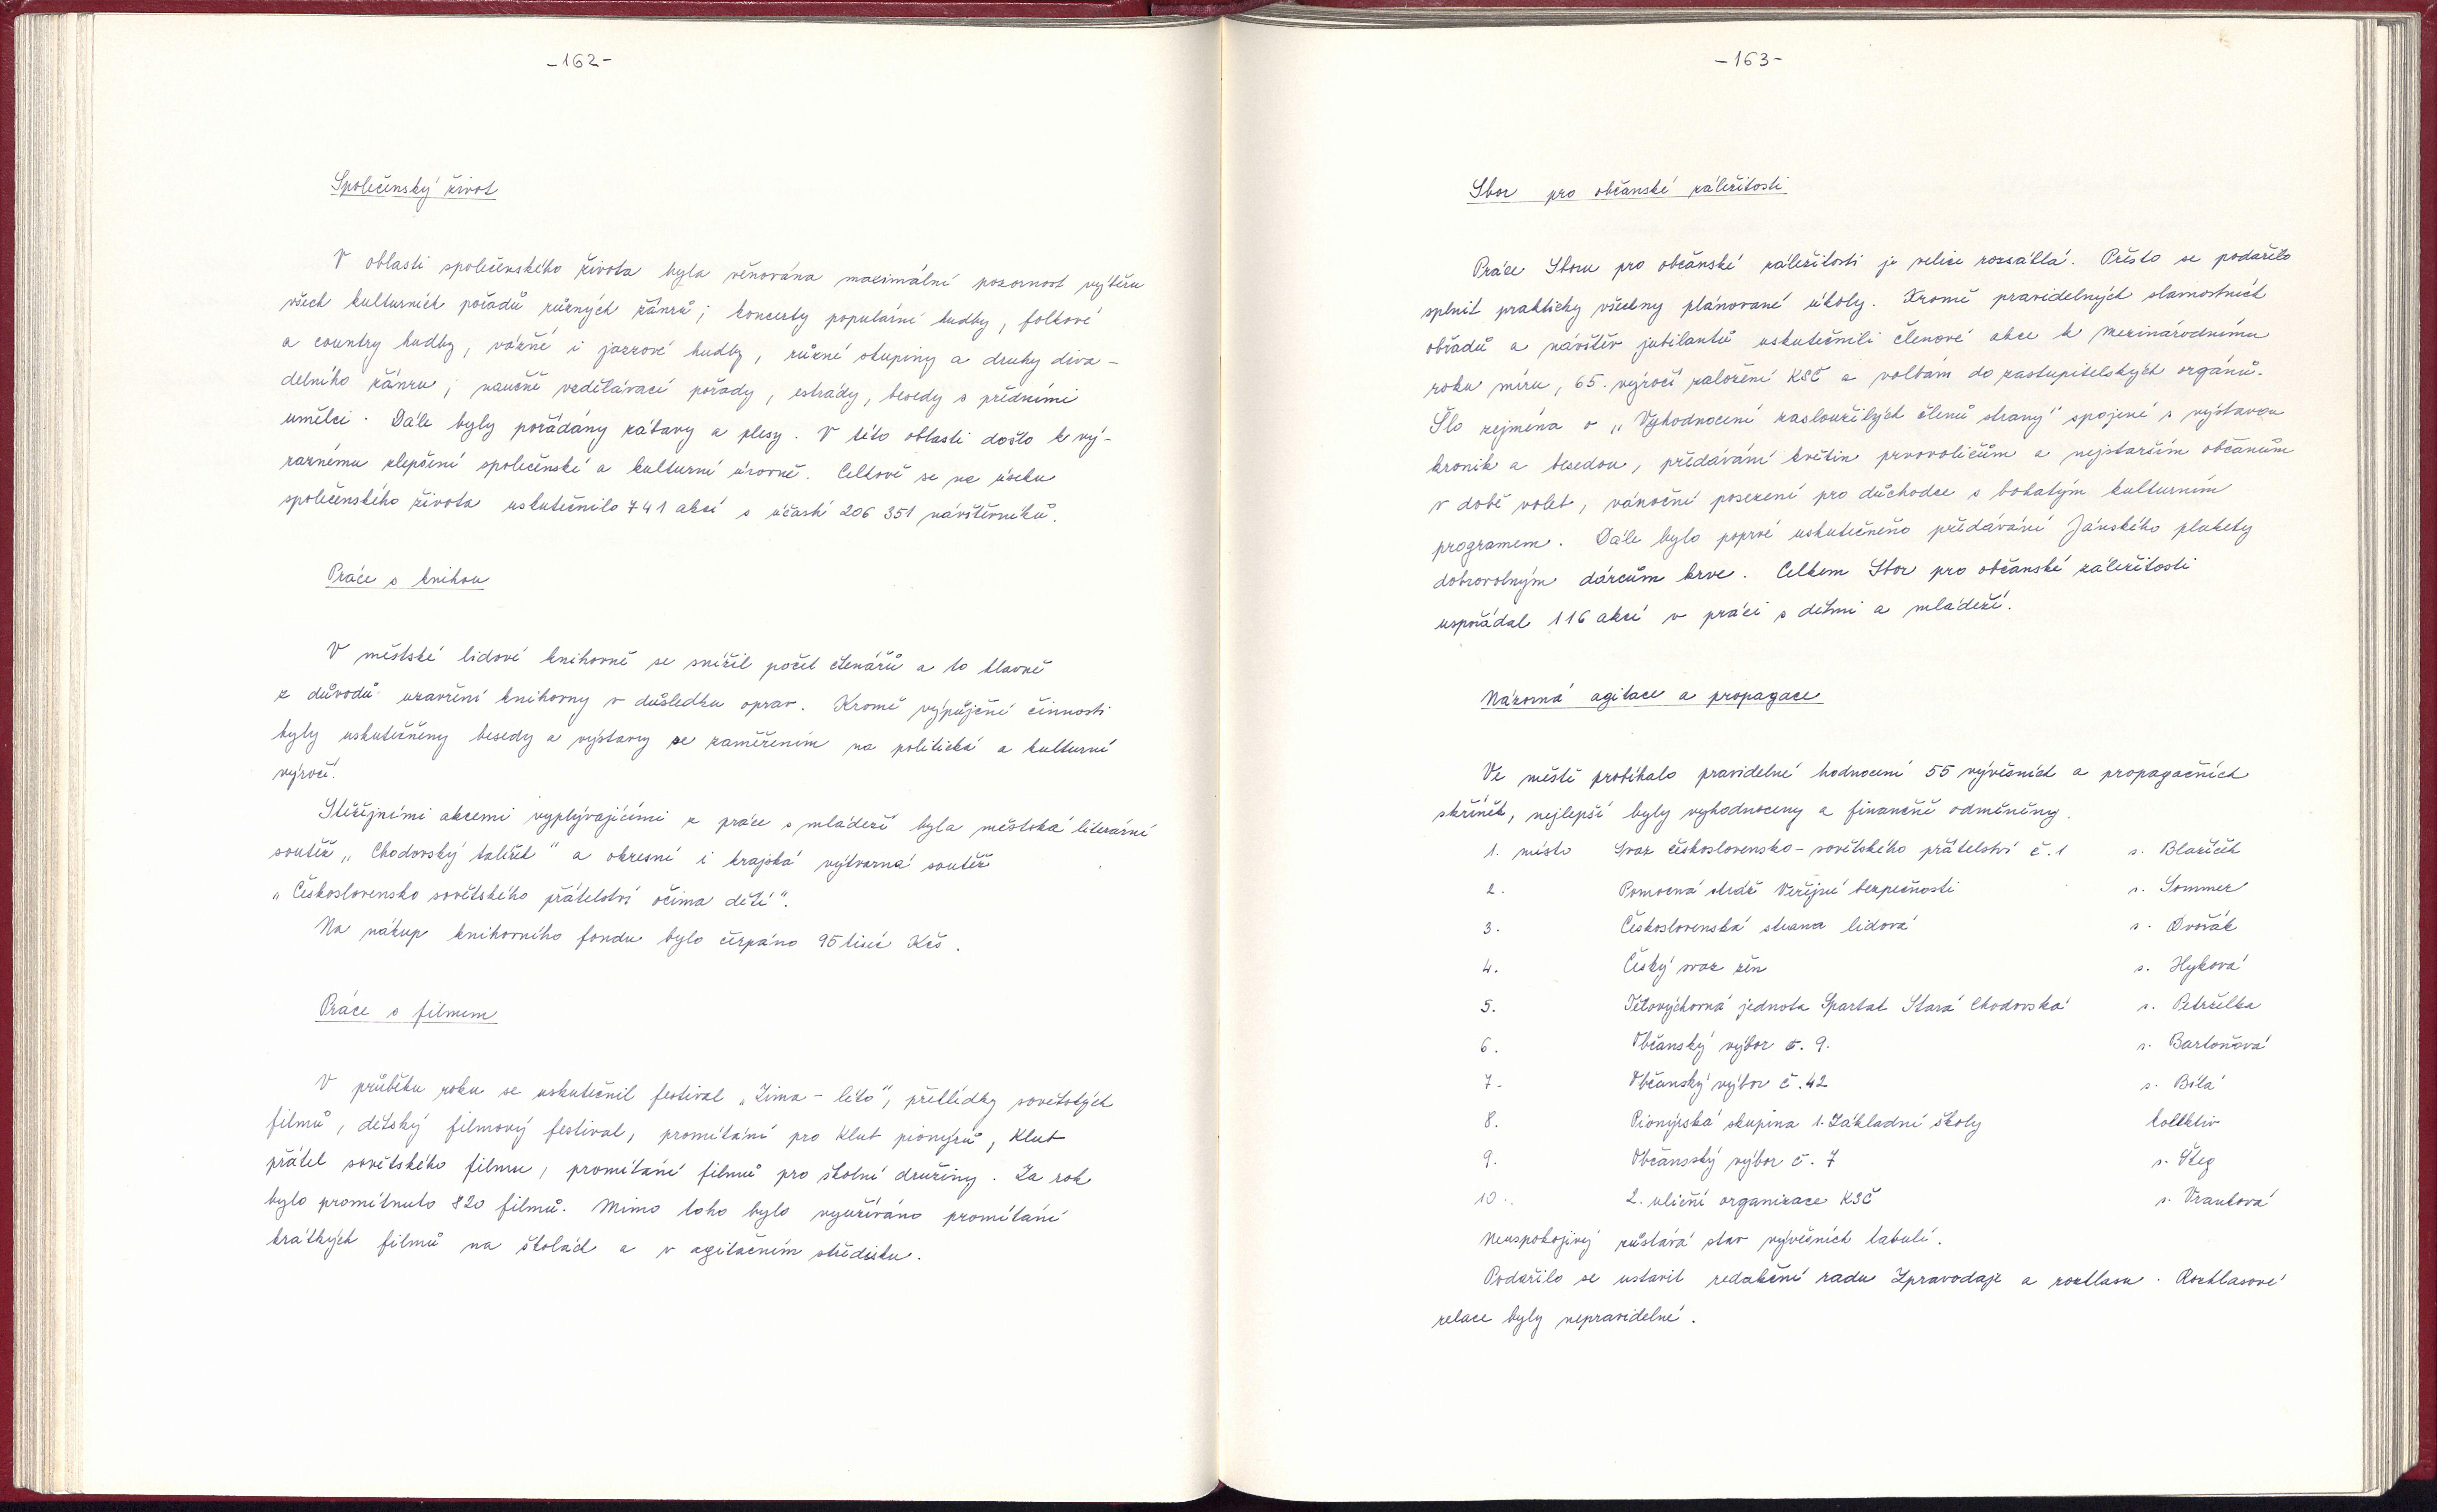 -162-
Společenský život
V oblasti společenského života byla věnována maximální pozornost výběru
všech kulturních pořadů různých žánrů; koncerty populární hudby, folkové
a country hudby, vážné i jazzové hudby, různé stupiny a druhy diva-
delního žánru; naučně vzdělávací pořady, estrády, besedy s předními
umělci. Dále byly pořádány zábavy a plesy. V této oblasti došlo k vý-
raznému zlepšení společenské a kulturní úrovně. Celkově se na úseku
společenského života uskutečnilo 741 akcí s účastí 206 351 návštěvníků.
Práce s knihou
V městské lidové knihovně se snížil počet čtenářů a to hlavně
z důvodů uzavření knihovny v důsledku oprav. Kromě výpůjční činnosti
byly uskutečněny besedy a výstavy se zaměřením na politická a kulturní
výročí.
Stěžejními akcemi vyplývajícími z práce s mládeží byla městská literární
soutěž „Chodovský talířek" a okresní i krajská výtvarná soutěž
„Československo sovětského přátelství očima dětí".
Na nákup knihovního fondu bylo čerpáno 95 tisíc Kčs.
Práce s filmem
V průběhu roku se uskutečnil festival „Zima - léto", přehlídky sovětských
filmů, dětský filmový festival, promítání pro Klub pionýrů, Klub
přátel sovětského filmu, promítání filmů pro školní družiny. Za rok
bylo promítnuto 820 filmů. Mimo toho bylo využíváno promítání
krátkých filmů na školách a v agitačním středisku.
-163-
Sbor pro občanské záležitosti
Práce Sboru pro občanské záležitosti je velice rozsáhlá. Přesto se podařilo
splnit prakticky všechny plánované úkoly. Kromě pravidelných slavnostních
obřadů a návštěv jubilantů uskutečnili členové akce k Mezinárodnímu
roku míru, 65. výročí založení KSČ a volbám do zastupitelských orgánů.
Šlo zejména o „Vyhodnocení zasloužilých členů strany" spojené s výstavou
kronik a besedou, předávání květin prvovoličům a nejstarším občanům
v době voleb, vánoční posezení pro důchodce s bohatým kulturním
programem. Dále bylo poprvé uskutečněno předávání Jánského plakety
dobrovolným dárcům krve. Celkem Sbor pro občanské záležitosti
uspořádal 116 akcí v práci s dětmi a mládeží.
Názorná agitace a propagace
Ve městě probíhalo pravidelné hodnocení 55 vývěsních a propagačních
skříněk, nejlepší byly vyhodnoceny a finančně odměněny.
1. místo Svaz československo-sovětského přátelství č.1 s. Blažíček
2. Pomocná stráž Veřejné bezpečnosti s. Sommer
3. Československá strana lidová s. Dvořák
4. Český svaz žen s. Hyková
5. Tělovýchovná jednota Spartak Stará Chodovská s. Petrželka
6. Občanský výbor č. 9. s. Bartoňová
7. Občanský výbor č. 42 s. Bílá
8. Pionýrská skupina 1. Základní školy kolektiv
9. Občanský výbor č. 7 s. Šteg
10. 2. uliční organizace KSČ s. Vranková
Neuspokojivý zůstává stav vývěsních tabulí.
Podařilo se ustavit redakční radu Zpravodaje a rozhlasu. Rozhlasové
relace byly nepravidelné.